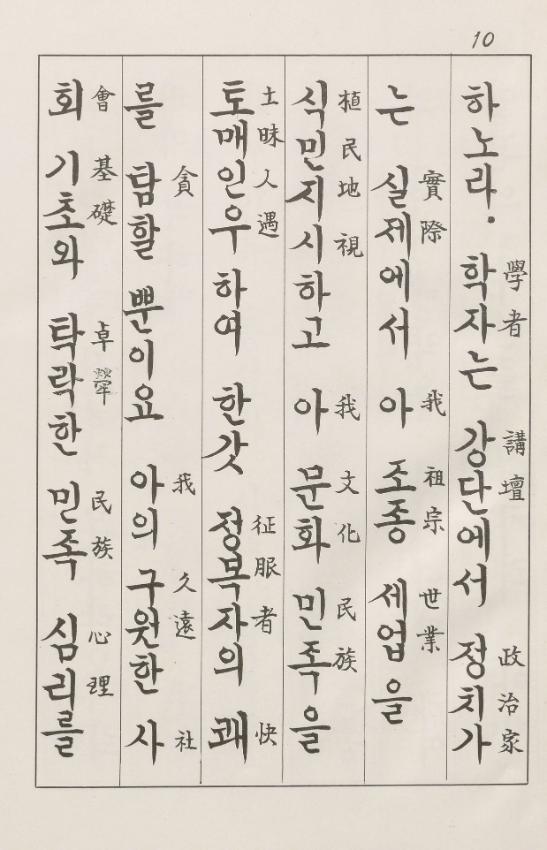 10
하노라. 학자는 강단에서 정치가
學者 講壇 政治家
는 실제에서 아 조종 세업을
實際 我 祖宗 世業
식민지시하고 아 문화 민족을
植民地視 我 文化 民族
토매인우하여 한갓 정복자의 쾌
土昧人遇 征服者 快
를 탐할 뿐이요 아의 구원한 사
貪 我 久遠 社
회 기초와 탁락한 민족 심리를
會 基礎 卓犖 民族 心理